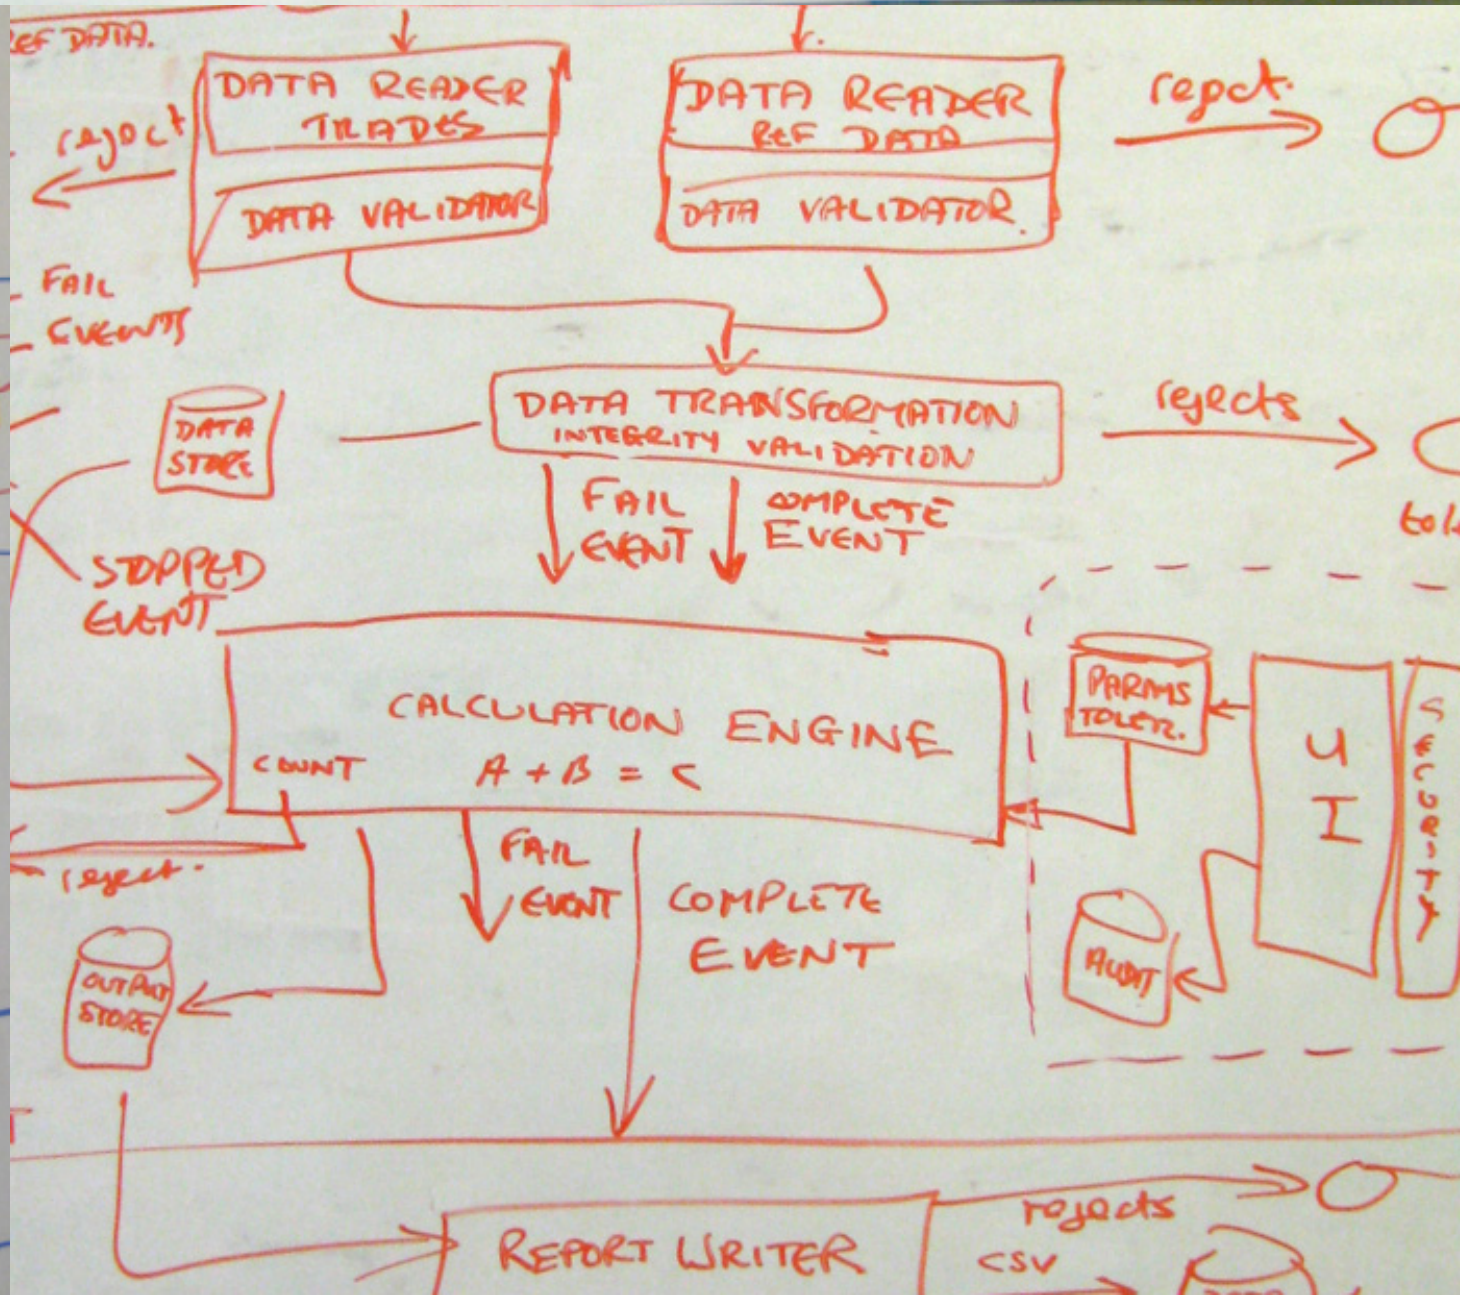 REF DATA.
DATA READER
TRADES
DATA VALIDATOR
reject
DATA READER
REF DATA
DATA VALIDATOR.
reject.
FAIL
EVENTS
DATA
STORE
DATA TRANSFORMATION
INTEGRITY VALIDATION
rejects
FAIL
EVENT
COMPLETE
EVENT
STOPPED
EVENT
CALCULATION ENGINE
COUNT
A + B = C
PARAMS
TOLER.
UI
SECURITY
reject.
FAIL
EVENT
COMPLETE
EVENT
AUDIT
OUTPUT
STORE
REPORT WRITER
rejects
CSV